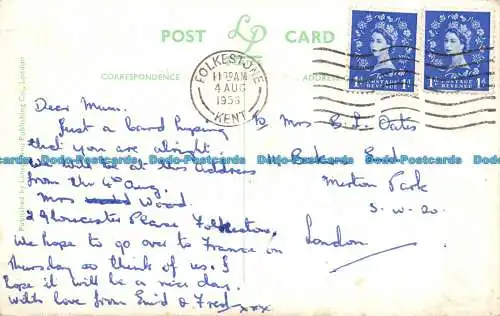 POST LP CARD
CORRESPONDENCE
ADDRESS
FOLKESTONE
11 30AM
4 AUG
1956
KENT
1d POSTAGE REVENUE 1d
1d POSTAGE REVENUE 1d
Published by Publishing Co., London
Dear Mum.
Just a card hoping
that you are alright
we will be at this address
from the 4th Aug.
Mrs Wood.
2 Gloucester Place Folkestone.
We hope to go over to France on
Thursday so think of us. I
hope it will be a nice day.
With love from Enid & Fred xxx
To Mrs B. L. Oates
Merton Park
S.W.20.
London
Dodo-Postcards Dodo-Postcards Dodo-Postcards Dodo-Postcards Dodo-Postcards